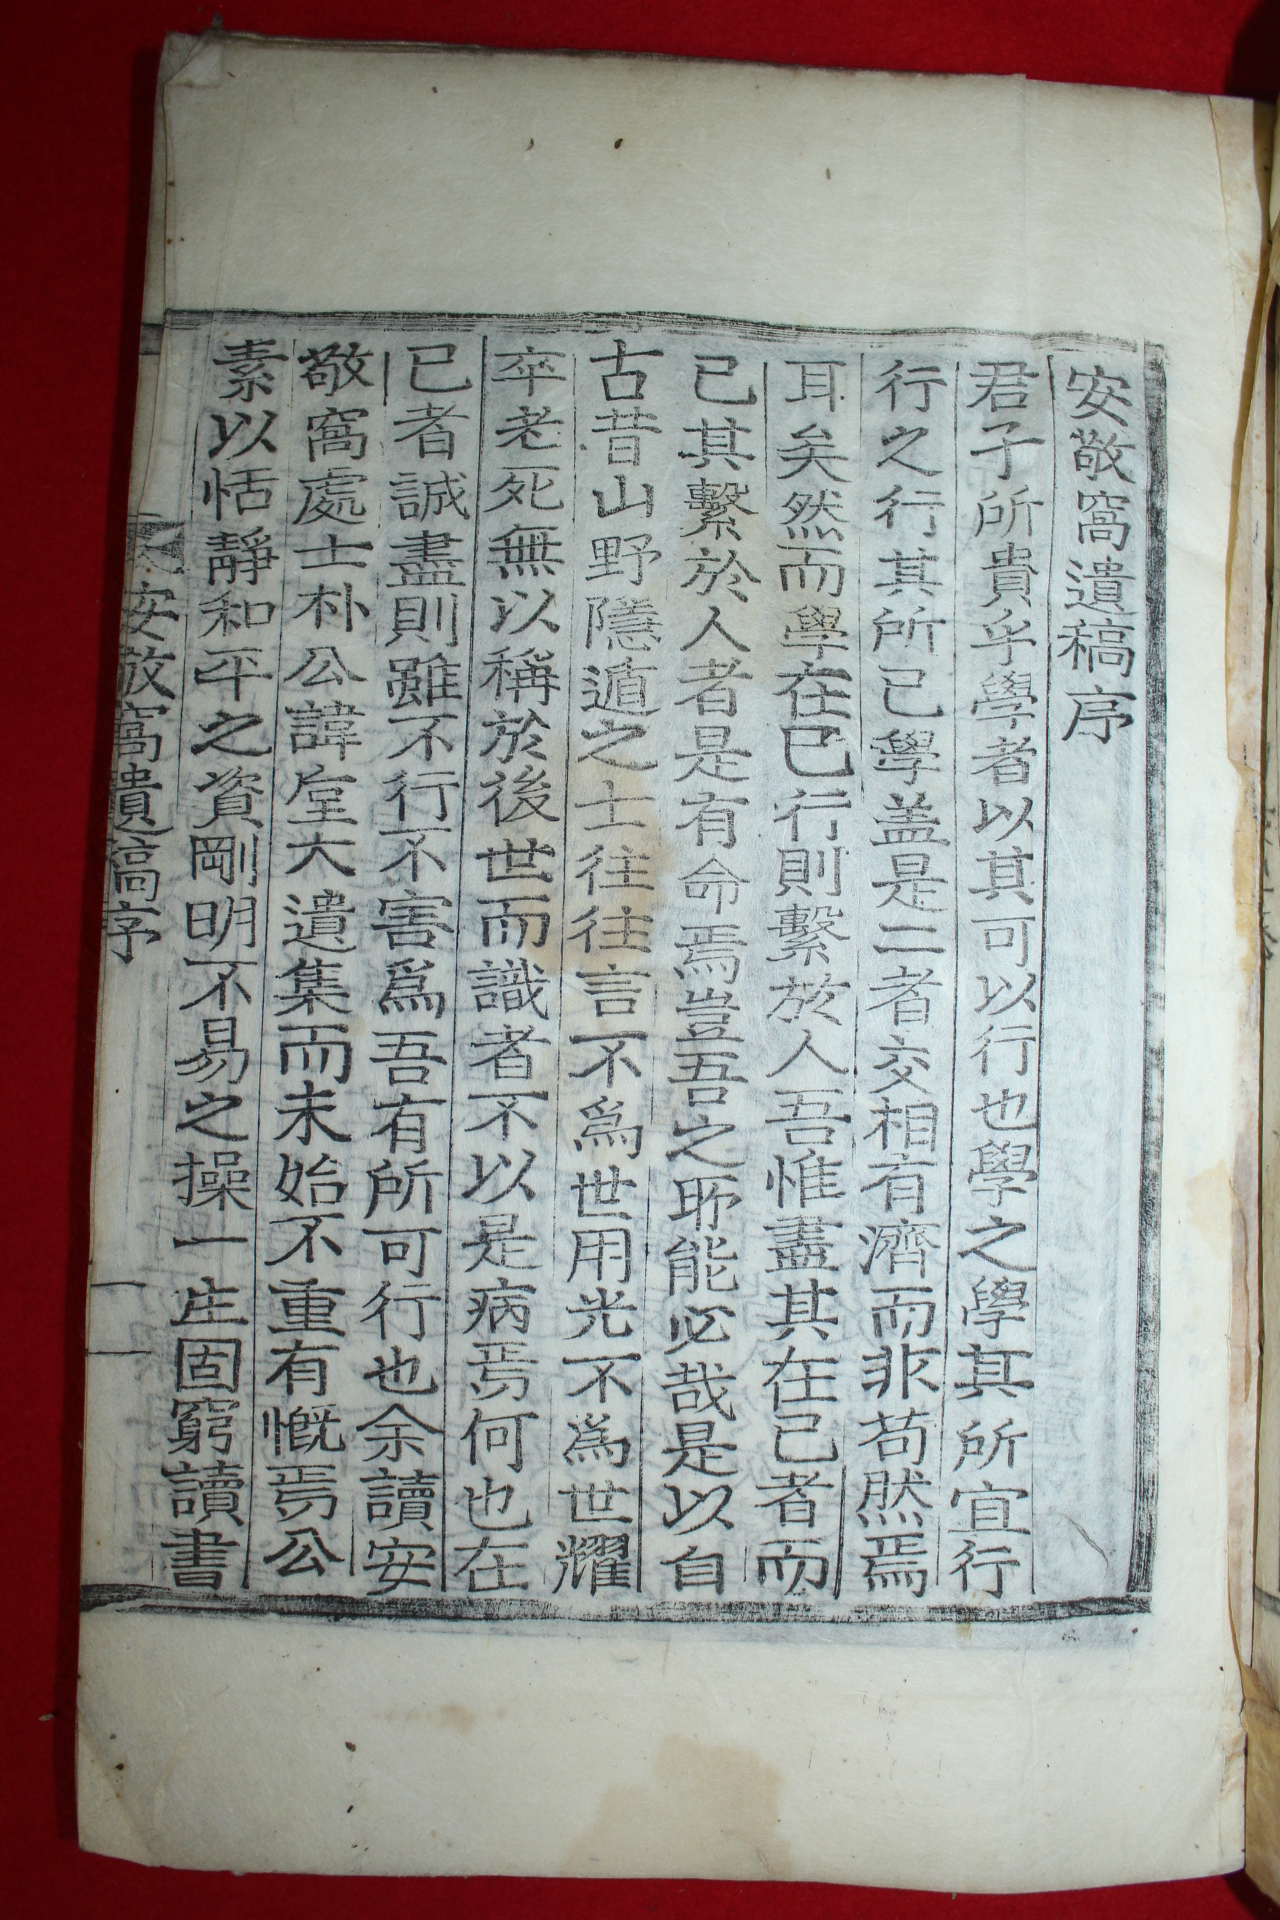 安敬窩遺稿序
君子所貴乎學者以其可以行也學之學其所宜行
行之行其所已學盖是二者交相有濟而非苟然焉
耳矣然而學在已行則繫於人吾惟盡其在己者而
已其繫於人者是有命焉豈吾之所能必哉是以自
古昔山野隱遁之士往往言不爲世用光不爲世耀
卒老死無以稱於後世而識者不以是病焉何也在
已者誠盡則雖不行不害爲吾有所可行也余讀安
敬窩處士朴公諱堂大遺集而未始不重有慨焉公
素以恬靜和平之資剛明不易之操一生固窮讀書
安敬窩遺稿序
一